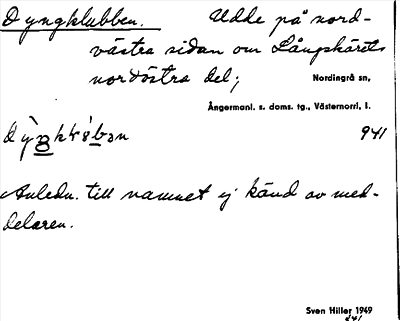 Dyngklubben. Udde på nord-
västra sidan om Långskärets
nordöstra del;
Nordingrå sn,
Ångermanl. s. doms. tg., Västernorrl. l.
941
Anledn. till namnet ej känd av med-
delaren.
Sven Hiller 1949